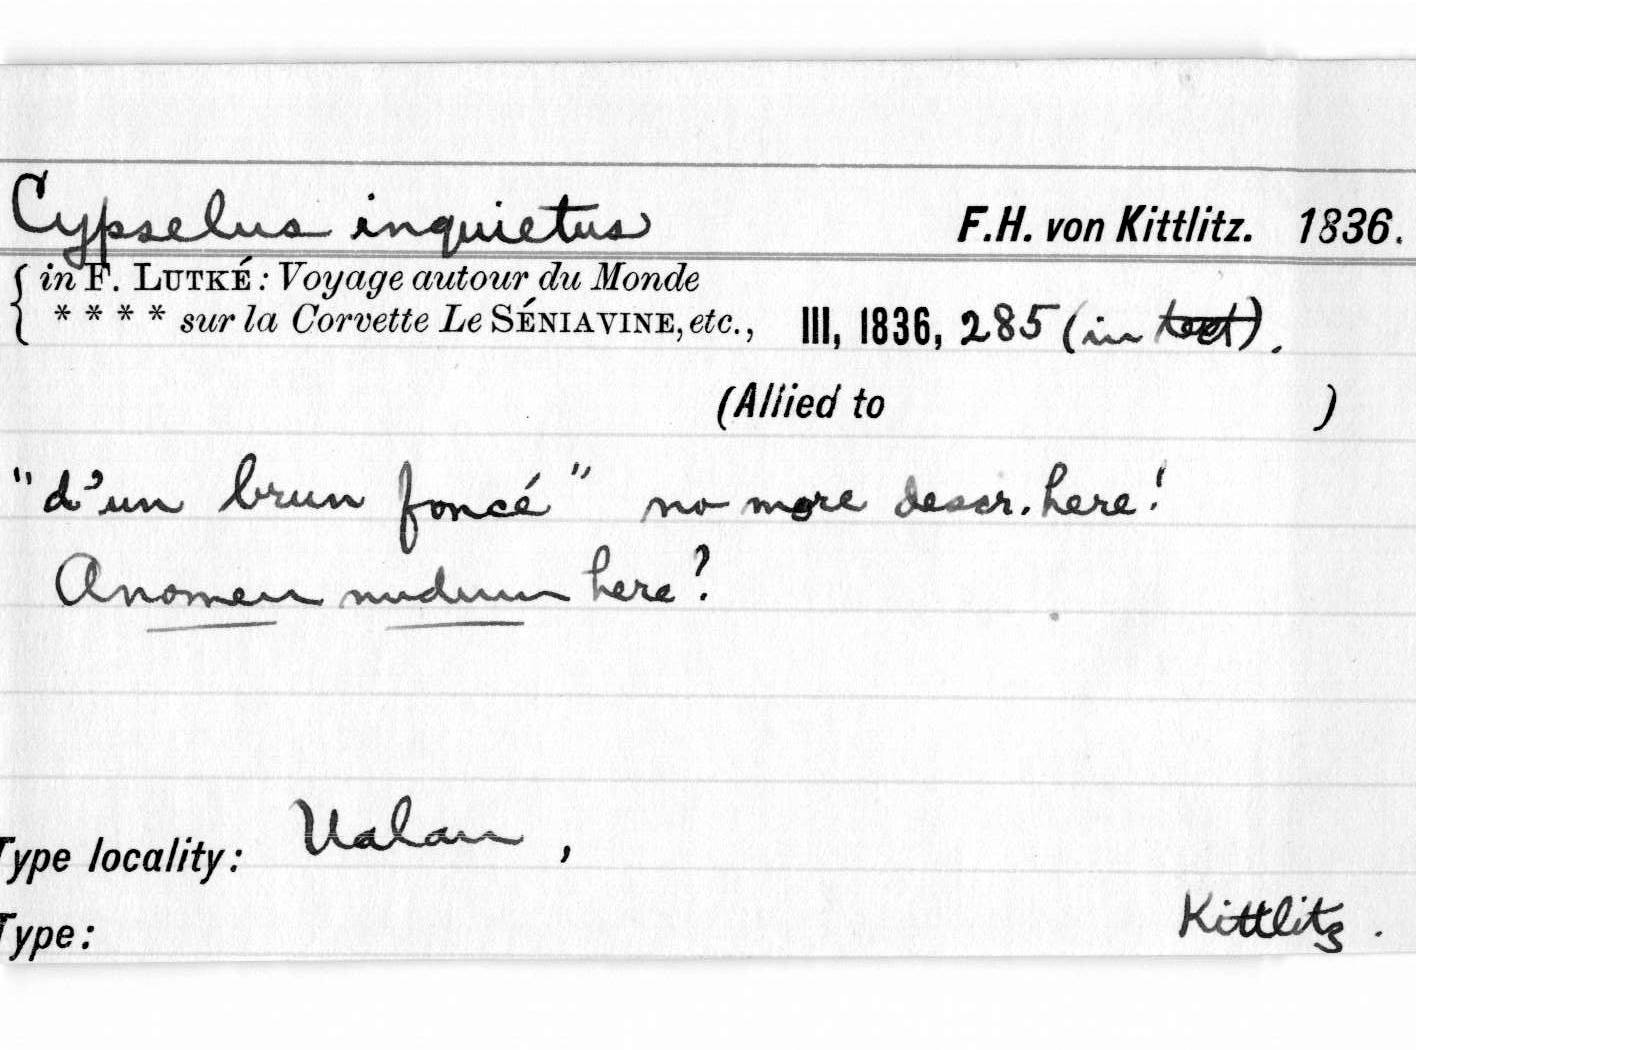 Cypselus inquietus F.H. von Kittlitz. 1836.
{ in F. LUTKÉ: Voyage autour du Monde
* * * * sur la Corvette Le SÉNIAVINE, etc., III, 1836, 285 (in text).
(Allied to )
"d'un brun foncé" no more descr. here!
A nomen nudum here?
Type locality: Ualan,
Type: Kittlitz.